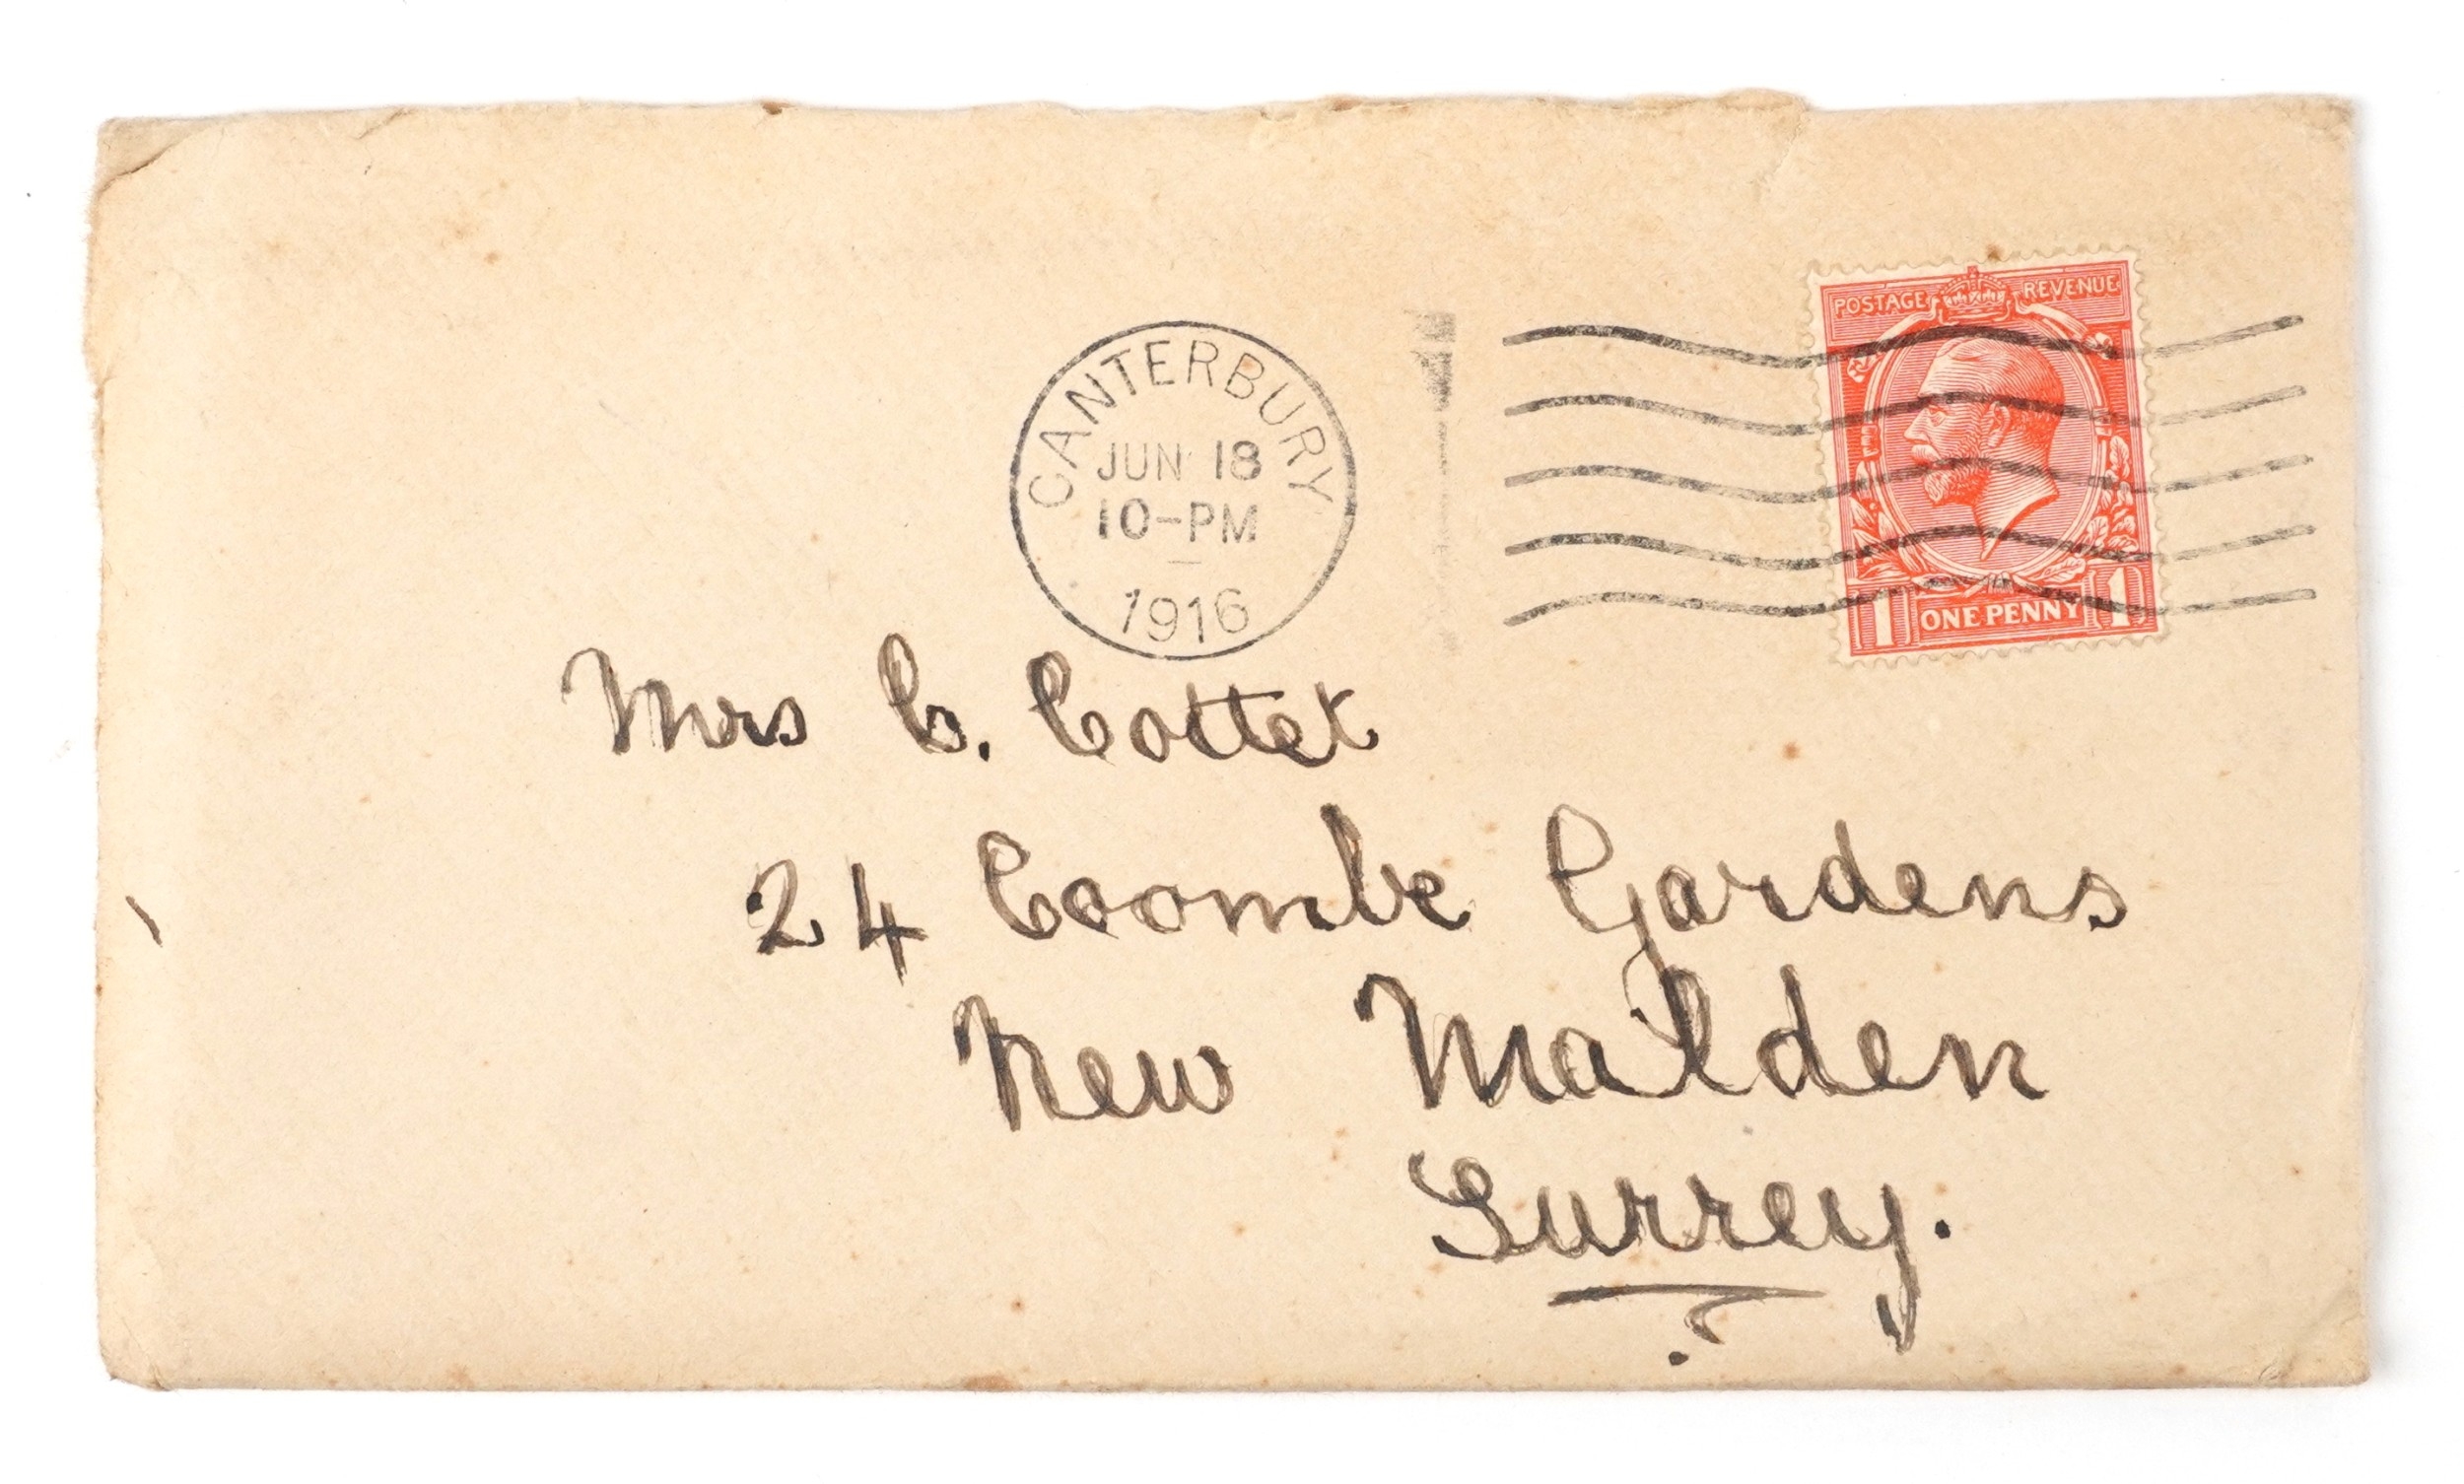 POSTAGE REVENUE
CANTERBURY
JUN 18
10-PM
1916
1 ONE PENNY 1
Mrs C. Cotter
24 Coombe Gardens
New Malden
Surrey.